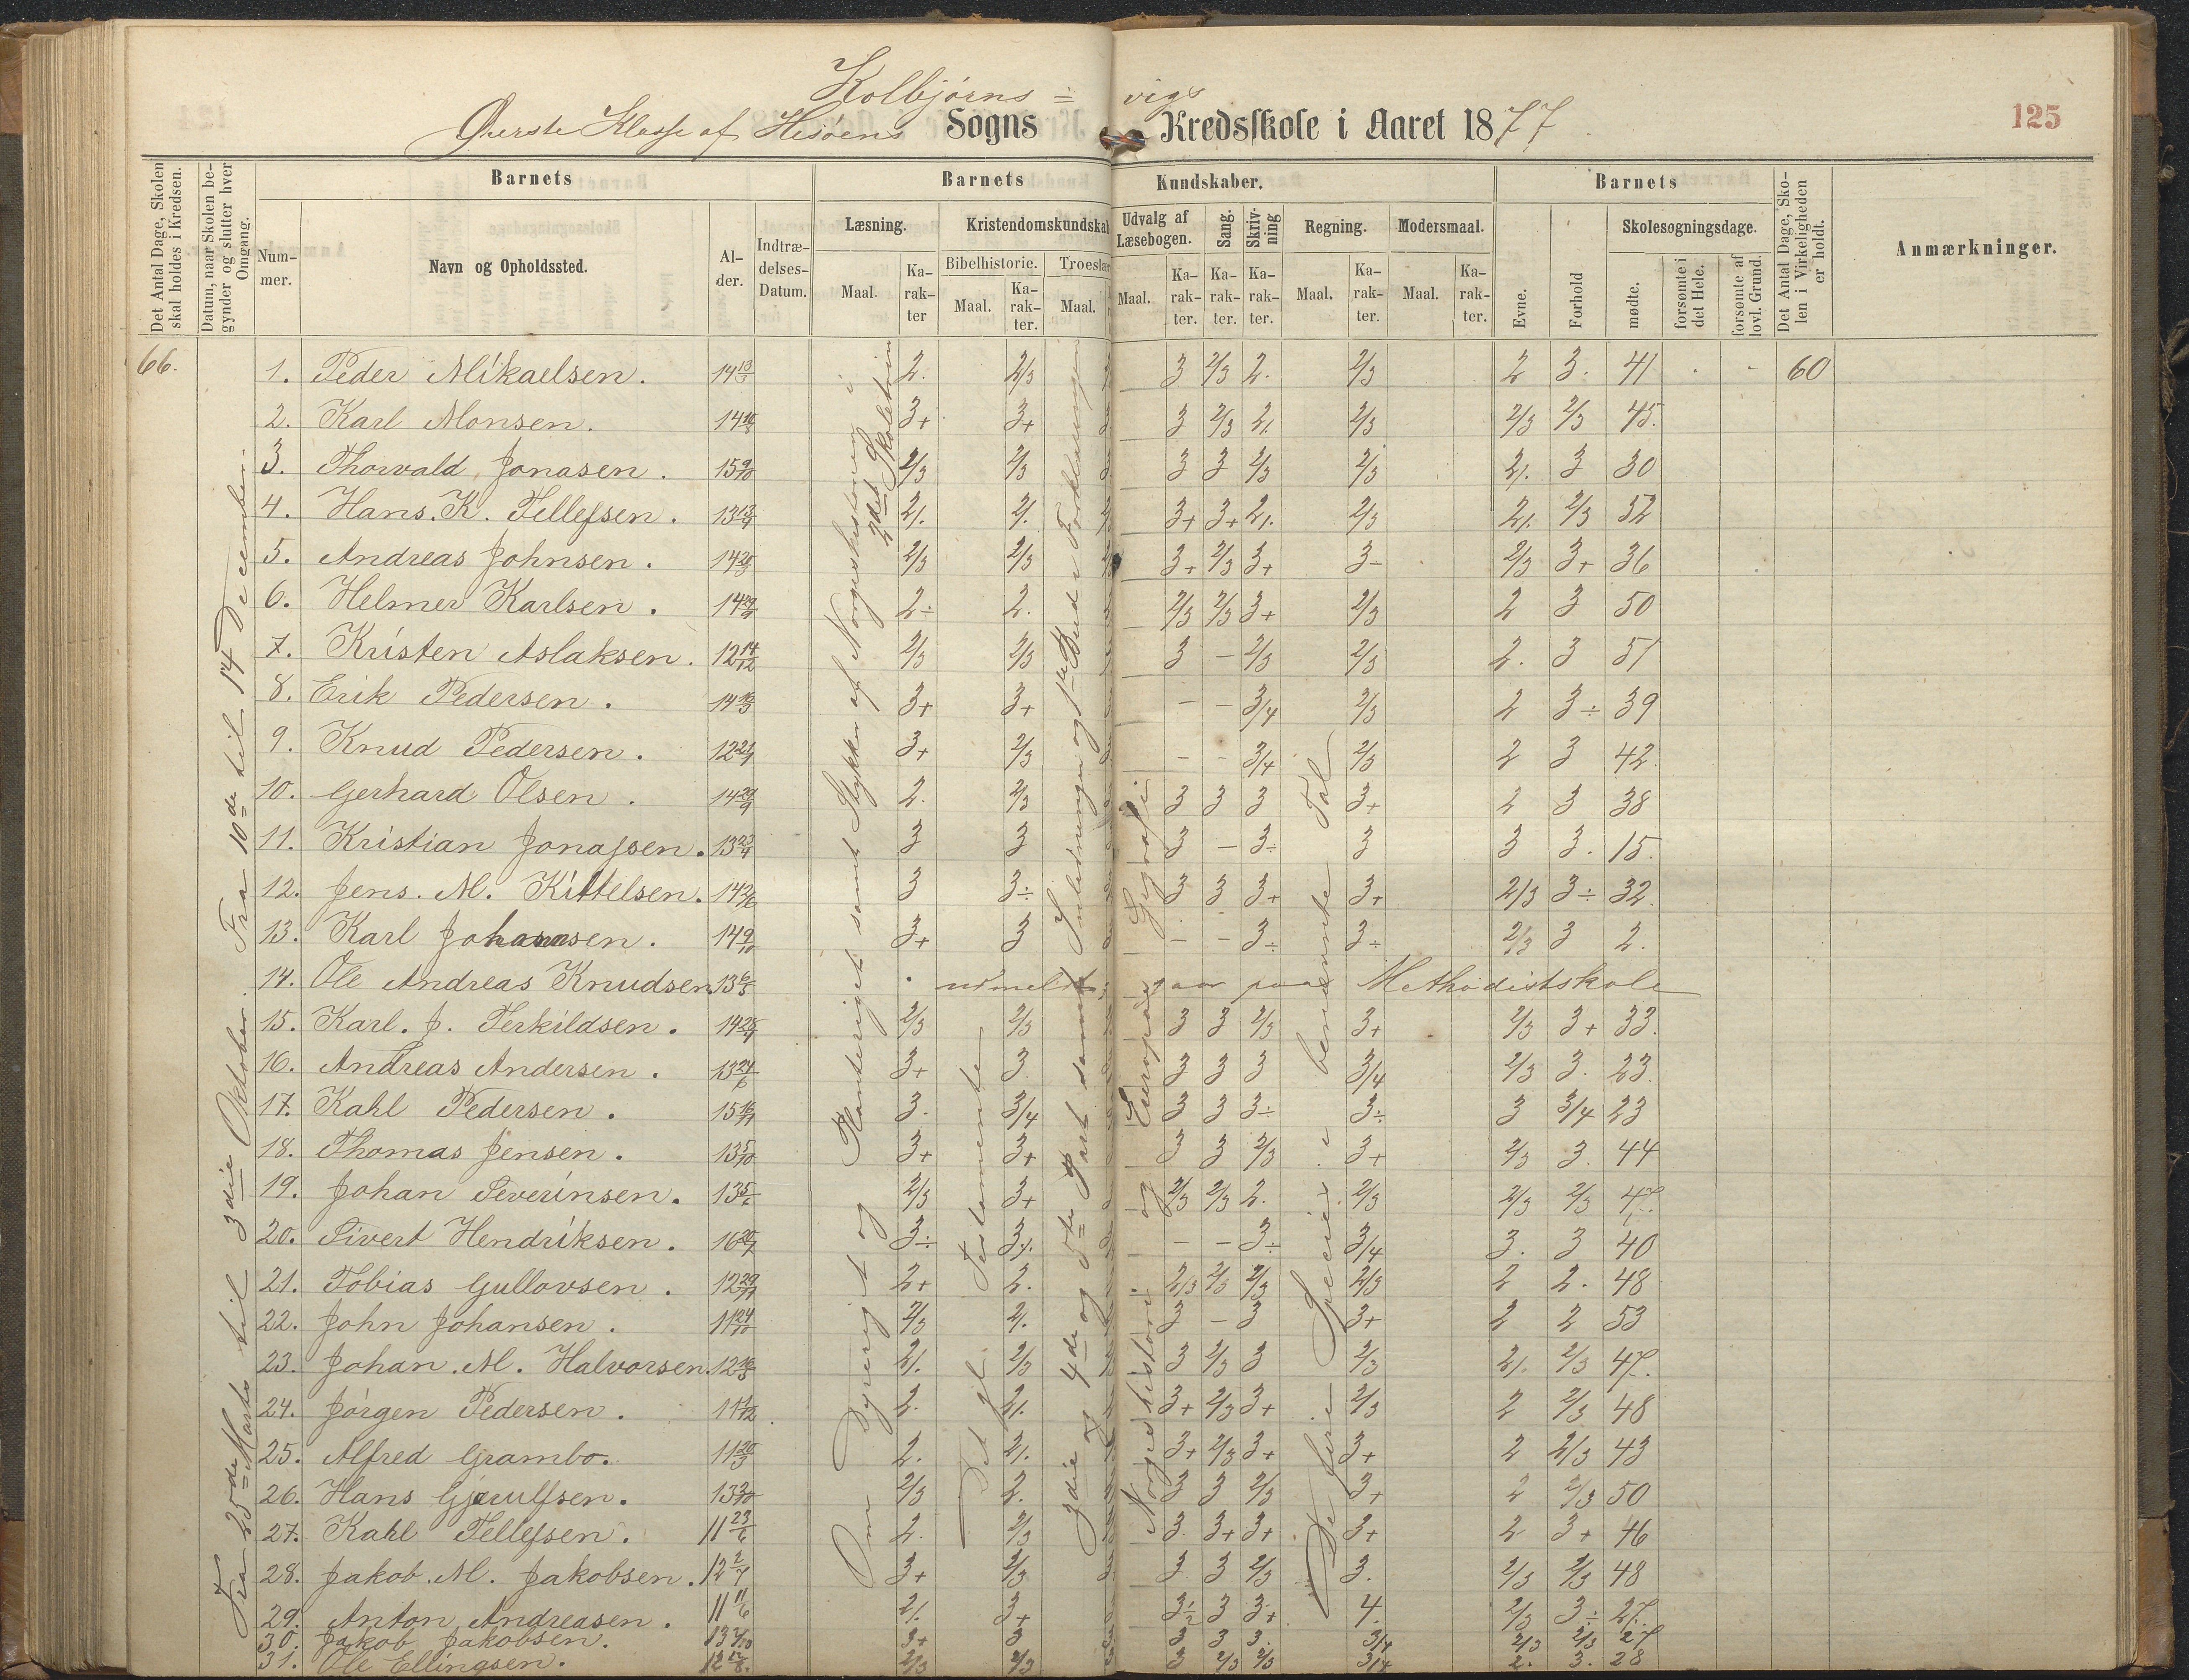 Kolbjørns= vigs
Øverste Klasse af Hisøens Sogns Kredsskole i Aaret 1877.
125
Det Antal Dage, Skolen skal holdes i Kredsen.
Datum, naar Skolen begynder og slutter hver Omgang.
Barnets
Nummer.
Navn og Opholdssted.
Alder.
Indtrædelses-Datum.
Barnets Kundskaber.
Læsning. Maal. Karakter
Kristendomskundskab
Bibelhistorie. Maal. Karakter.
Troeslær Maal.
Udvalg af Læsebogen. Maal. Karakter.
Sang. Karakter.
Skrivning Karakter.
Regning. Maal. Karakter.
Modersmaal. Maal. Karakter.
Barnets
Evne.
Forhold
Skolesøgningsdage.
mødte.
forsømte i det Hele.
forsømte af lovl. Grund.
Det Antal Dage, Skolen i Virkeligheden er holdt.
Anmærkninger.
66.
Fra 25de Marts til 3die Oktober. Fra 10de til 14 December.
Om Dyreriget og Planteriget samt Stykker af Norgeshistorien i 2det Skoletrin
Det gl. Testamente
3die og 4de og 5te Part samt Indledningen og 1ste Bud i Forklaringen
Norgeshistorie og Europas Geografi
De fire Species i benævnte Tal
1. Peder Mikaelsen. 14 13/3 2. 2/3 3 2/3 2. 2/3 2 3. 41 60
2. Karl Monsen. 3+ 3+ 3 2/3 2. 2/3 2/3 2/3 45.
3. Thorvald Jonasen. 15 9/10 2/3 2/3 3 3 2/3 2/3 2. 3 30
4. Hans. K. Tellefsen. 2. 2. 3+ 3+ 2. 2/3 2. 2/3 52
5. Andreas Johnsen. 2/3 2/3 3+ 2/3 3+ 3- 2/3 3+ 36
6. Helmer Karlsen. 2÷ 2. 2/3 2/3 3+ 2/3 2 3 50
7. Kristen Aslaksen. 12 14/12 2/3 2/3 3 - 2/3 2/3 2. 3 51
8. Erik Pedersen. 3+ 3+ - - 3/4 2/3 2 3÷ 39
9. Knud Pedersen. 3+ 2/3 - - 3/4 2/3 2 3 42.
10. Gerhard Olsen. 2. 2/3 3 3 3 3+ 2 3 38
11. Kristian Jonassen. 13 23/4 3 3 3 - 3÷ 3 3 3. 15.
12. Jens. M. Kittelsen. 3 3÷ 3 3 3+ 3+ 2/3 3÷ 32.
13. Karl Johansen. 14 9/10 3+ 3 - - 3÷ 3÷ 2/3 3 2.
14. Ole Andreas Knudsen 13 6/5 udmeldt, gaar paa Methodistskole
15. Karl. J. Terkildsen. 2/3 2/3 3 3 2/3 3+ 2/3 3+ 33.
16. Andreas Andersen. 13 24/6 3+ 3 3 3 3 3/4 2/3 3. 23.
17. Kahl Pedersen. 3. 3/4 3 3 3÷ 3÷ 3 3/4 23
18. Thomas Jensen. 13 5/10 3+ 3+ 3 3 2/3 3+ 2/3 3. 44
19. Johan Severinsen. 13 5/6 2/3 3+ 2/3 2/3 2. 2/3 2/3 2/3 47.
20. Sivert Hendriksen. 3÷ - - 3÷ 3/4 3. 3 40
21. Tobias Gullovsen. 12 29/11 2+ 2. 2/3 2/3 2/3 2/3 2 2. 48
22. John Johansen. 11 24/10 2/3 2. 3 - 3 3+ 2 2 53
23. Johan. M. Halvorsen. 2. 2/3 3 2/3 3 2/3 2. 2/3 47.
24. Jørgen Pedersen. 2. 2. 3+ 2/3 3+ 2/3 2 2/3 48
25. Alfred Grambo. 11 20/3 2. 2. 3+ 2/3 3+ 3+ 2 2/3 43
26. Hans Gjerulfsen. 2/3 2. 3 3 2/3 3+ 2 2/3 50
27. Kahl Tellefsen. 11 23/6 2. 2/3 3. 3+ 3+ 3+ 2 3+ 46
28. Jakob. M. Jakobsen. 12 2/7 3+ 2/3 3 3 2/3 3. 2/3 2/3 48
29. Anton Andreasen. 11 11/6 2. 3+ 3 1/2 3 3+ 4. 2/3 3÷ 27.
30. Jakob Jakobsen. 3+ 3 3 3 3. 3/4 2/3 2/3 27
31. Ole Ellingsen. 2/3 2/3 3 2/3 2/3 3/4 2. 3. 28